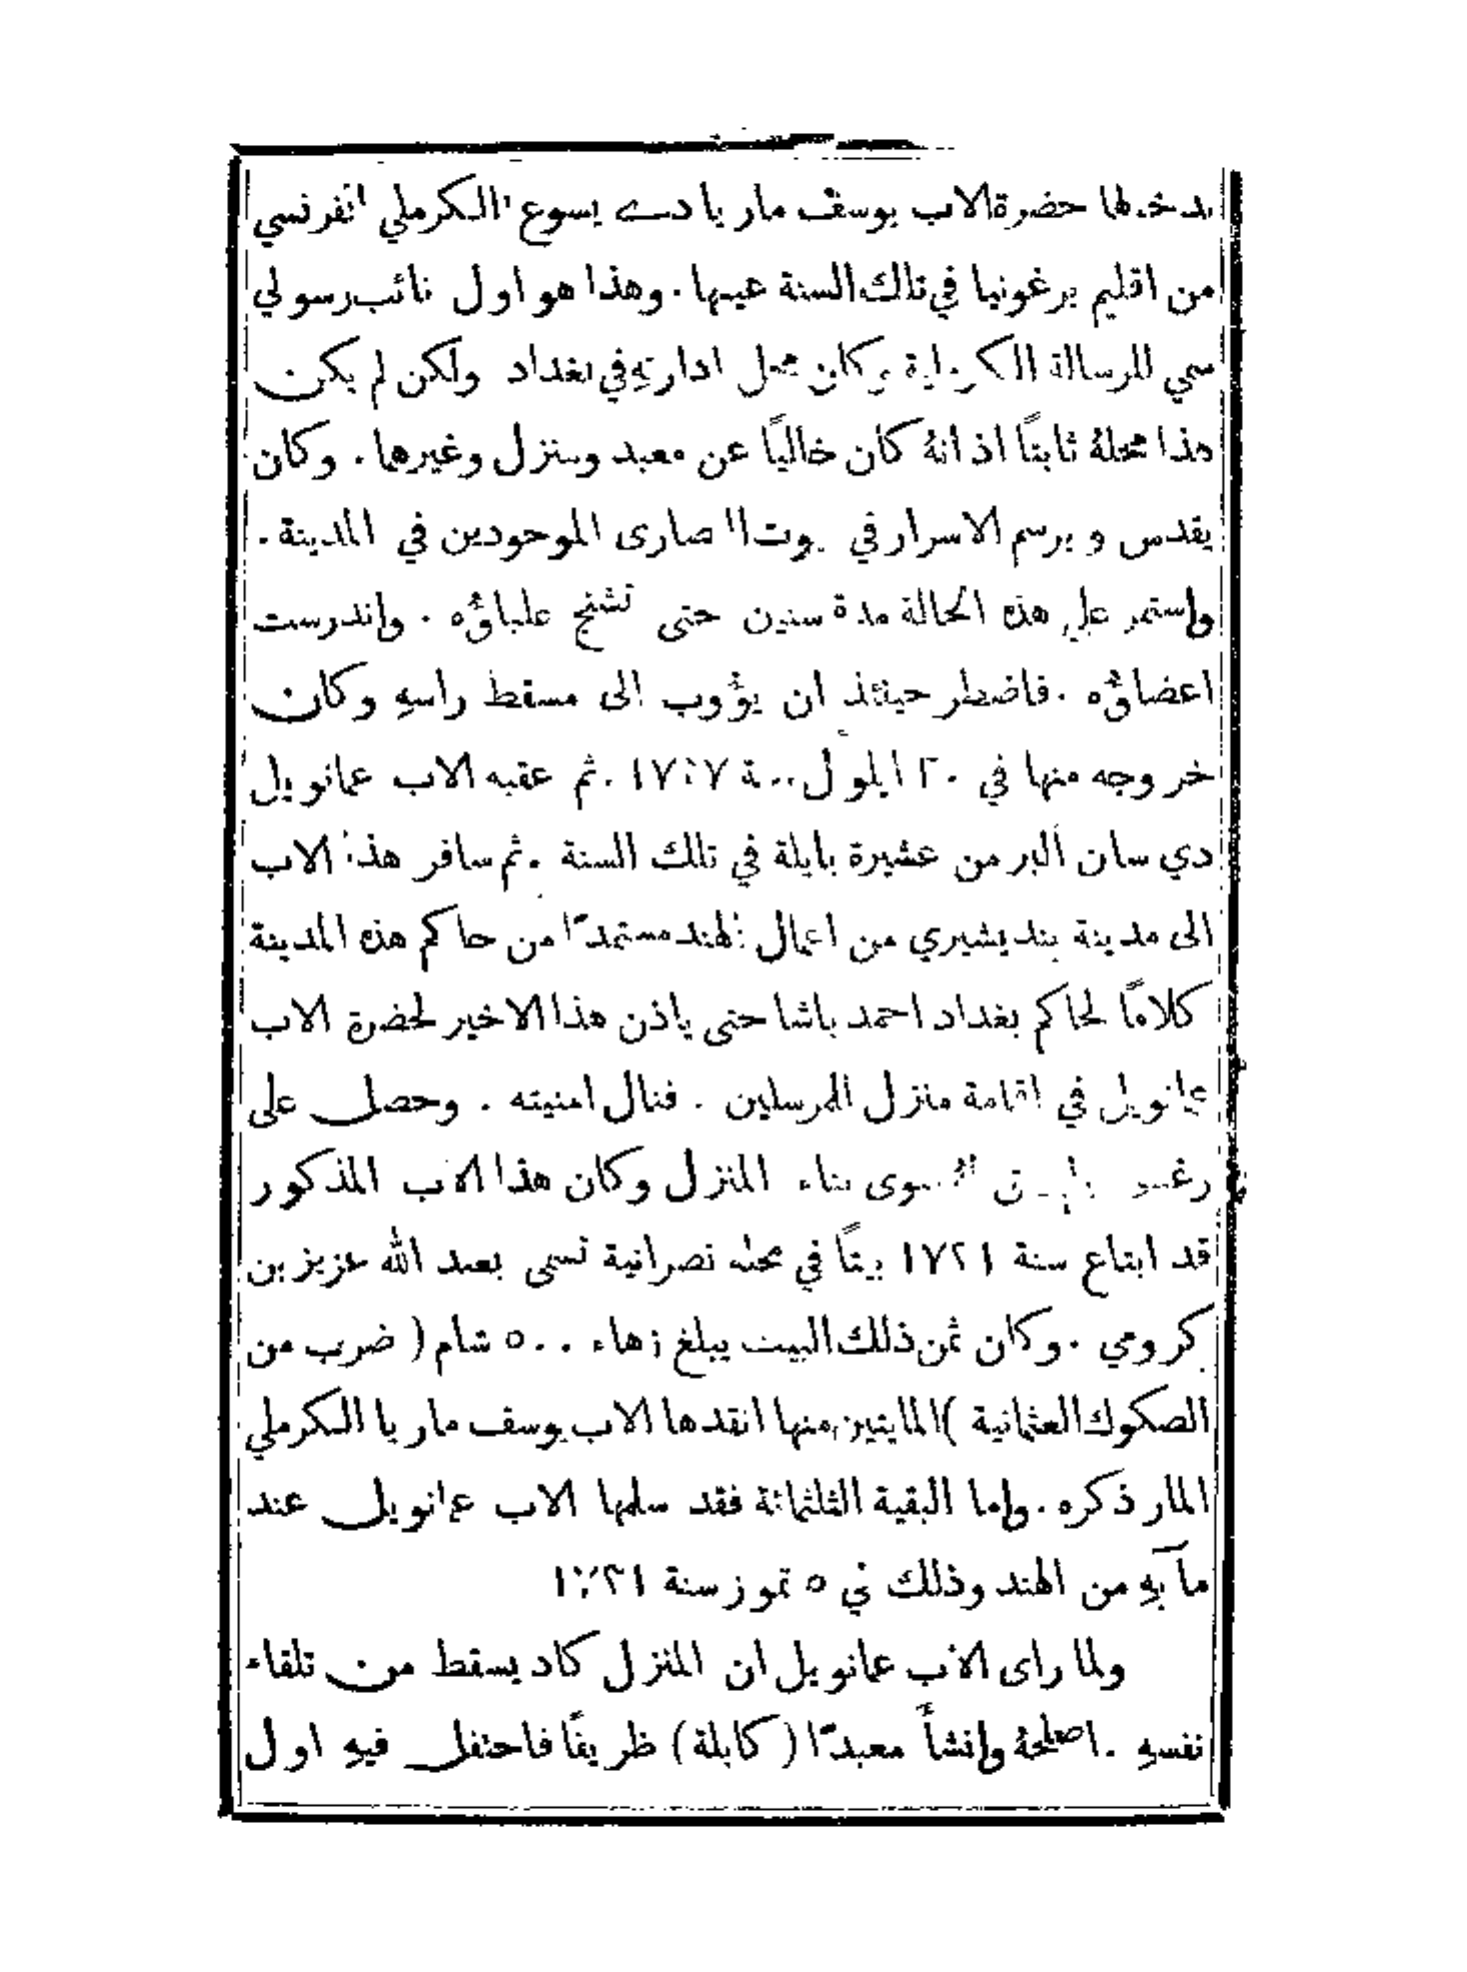 يدخلها حضرة الاب يوسف ماريا دي يسوع الكرملي الفرنسي
من اقليم برغونيا في تلك السنة عينها . وهذا هو اول نائب رسولي
سمي للرسالة الكرملية وكان محل ادارته في بغداد ولكن لم يكن
هذا محلهُ ثابتًا اذ انهُ كان خاليًا عن معبد ومنزل وغيرهما . وكان
يقدس و يرسم الاسرار في بيوت النصارى الموجودين في المدينة .
واستمر على هذه الحالة مدة سنين حتى تشنج علباؤُه . واندرست
اعضاؤُه . فاضطر حينئذ ان يؤُوب الى مسقط راسهِ وكان
خروجه منها في ٢٠ ايلول سنة . ثم عقبه الاب عمانويل
دي سان ألبر من عشيرة بايلة في تلك السنة . ثم سافر هذا الاب
الى مدينة بنديشيري من اعمال الهند مستمدًا من حاكم هذه المدينة
كلامًا لحاكم بغداد احمد باشا حتى ياذن هذا الاخير لحضرة الاب
عمانويل في اقامة منزل للمرسلين . فنال امنيته . وحصل على
سوى بناء المنزل وكان هذا الاب المذكور
قد ابتاع سنة ١٧٢١ بيتًا في محله نصرانية تسمى بعبد الله عزيز بن
كرومي . وكان ثمن ذلك البيت يبلغ زهاء ٥٠٠ شام ( ضرب من
الصكوك العثمانية ) المايتين منها انقدها الاب يوسف ماريا الكرملي
المار ذكره . واما البقية الثلثمائة فقد سلمها الاب عمانويل عند
مآبهِ من الهند وذلك في ٥ تموز سنة
ولما راى الاب عمانويل ان المنزل كاد يسقط من تلقاء
نفسهِ . اصلحهُ وانشأَ معبدًا ( كابلة ) ظريفًا فاحتفل فيهِ اول